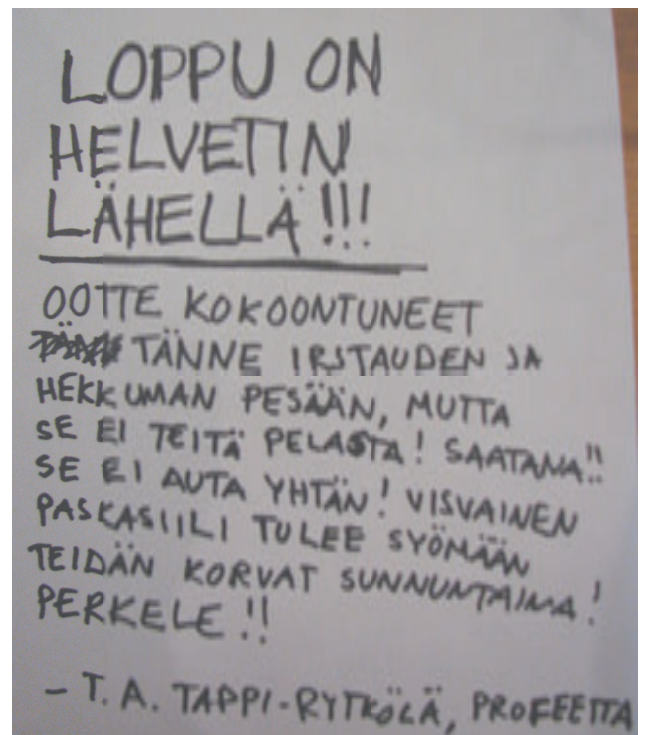 LOPPU ON
HELVETIN
LÄHELLÄ!!!
OOTTE KOKOONTUNEET
TÄNNE IRSTAUDEN JA
HEKKUMAN PESÄÄN, MUTTA
SE EI TEITÄ PELASTA! SAATANA!!
SE EI AUTA YHTÄN! VISVAINEN
PASKASIILI TULEE SYÖMÄÄN
TEIDÄN KORVAT SUNNUNTAINA!
PERKELE!!
- T. A. TAPPI-RYTKÖLÄ, PROFEETTA